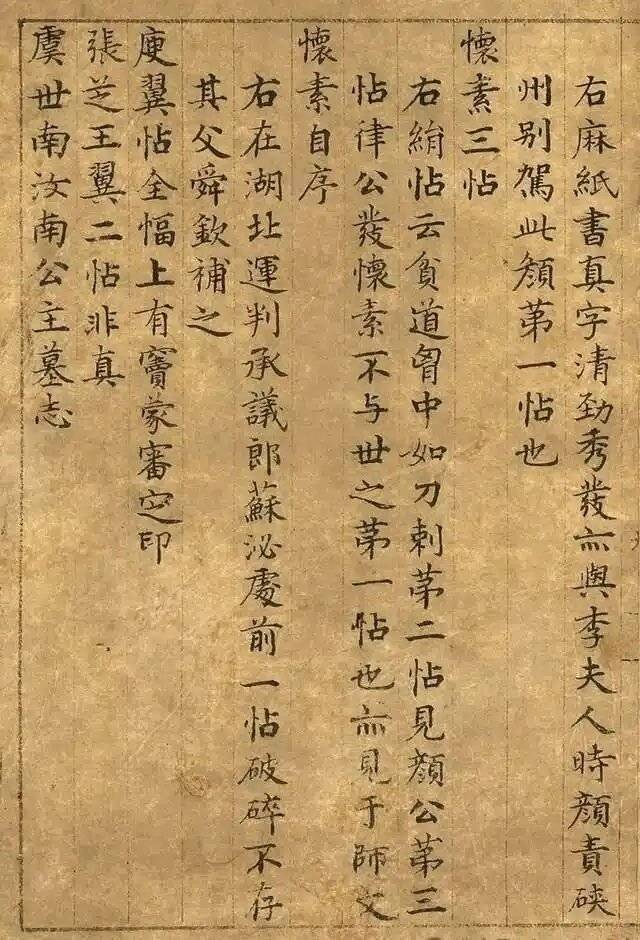 右麻紙書真字清勁秀發亦與李夫人時顏責硤
州别駕此顏第一帖也
懷素三帖
右絹帖云貧道胷中如刀刺第二帖見顏公第三
帖律公發懷素不与世之第一帖也亦見于師文
懷素自序
右在湖北運判承議郎蘇泌處前一帖破碎不存
其父舜欽補之
庾翼帖全幅上有竇蒙審定印
張芝王翼二帖非真
虞世南汝南公主墓志